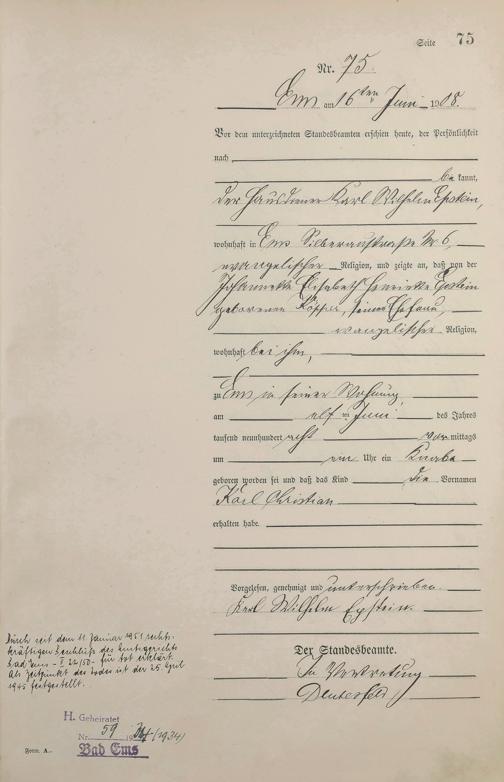 Seite 75
Nr. 75.
Ems am 16ten Juni 1908.
Vor dem unterzeichneten Standesbeamten erschien heute, der Persönlichkeit
nach
bekannt,
der Hausdiener Karl Wilhelm Epstein,
wohnhaft in Ems Silberaustraße № 6,
evangelischer Religion, und zeigte an, daß von der
Johannette Elisabeth Henriette Epstein
geborenen seiner Ehefrau,
evangelischer Religion,
wohnhaft bei ihm,
zu Ems in seiner Wohnung,
am elften Juni des Jahres
tausend neunhundert acht vormittags
um ein Uhr ein Knabe
geboren worden sei und daß das Kind die Vornamen
Karl Christian
erhalten habe.
Vorgelesen, genehmigt und unterschrieben.
Karl Wilhelm Epstein.
Der Standesbeamte.
In Vertretung
Durch seit dem 11 Januar 1951 rechts-
kräftigen Beschluß des Amtsgerichts
Bad Ems - II 22/50 - für tot erklärt.
Als Zeitpunkt des Todes ist der 25. April
1945 festgestellt.
H. Geheiratet
Nr. 59 1934 (1934)
Bad Ems
Form. A.